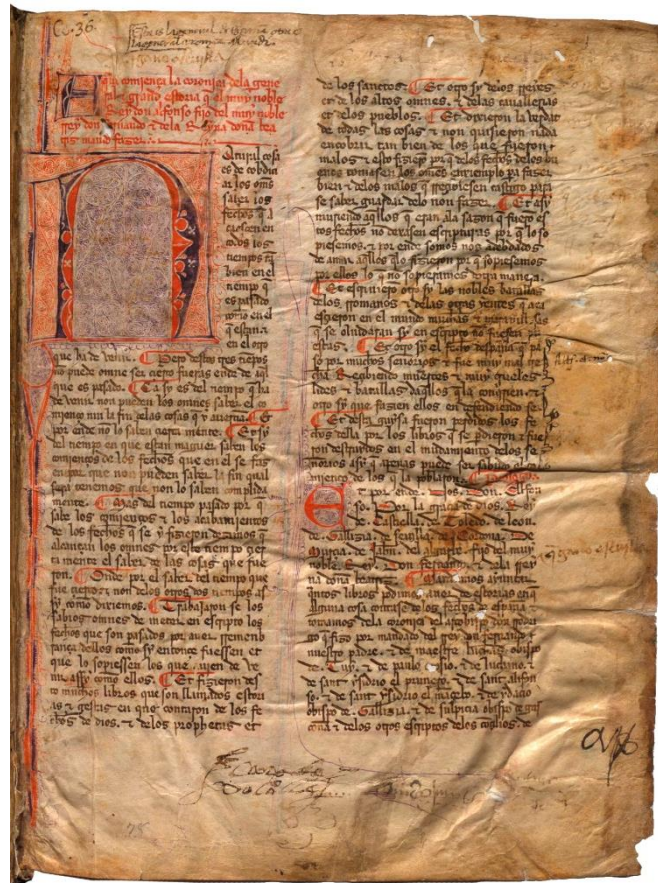 Cc. 36.
Aqui comiença la coronica dela gene
ral grand estoria q̃ el muy noble
Rey don alfonso fijo del muy noble
rey don fernando ⁊ dela Reyna doña bea
tris mando fazer
Natural cosa
es de cobdiciar
los oms̃
saber los
fechos q̃ a
caescen en
todos los
tienpos tã
bien en el
tienpo q̃
es pasado
como en el
q̃ estan ⁊
en el otro
que ha de venir. Pero destos tres tiẽpos
no puede omne ser cierto fueras ende de aq̃l
que es pasado. Ca sy es del tienpo q̃ ha
de venir non pueden los omnes saber el co
mienço nin la fin delas cosas q̃ y avernã. Et
por ende no lo saben çierta mente. Et sy
del tienpo en que estan maguer saben los
comienços de los fechos que en el se fazen
por que non pueden saber la fin qual
sera tenemos que non lo saben conplida
mente. Mas del tienpo pasado por q̃
sabe los comienços ⁊ los acabamientos
de los fechos que se y fizieron dezimos q̃
alcançan los omnes por este tienpo çier
ta mente el saber de las cosas que fue
ron. Onde por el saber del tienpo que
fue çierto ⁊ non delos otros dos tienpos as
sy como diximos. Trabajaron se los
sabios omnes de meter en escripto los
fechos que son pasados por auer remenb
rança dellos como sy entonçe fuessen et
que lo sopiessen los que auien de ve
nir assy como ellos. Et fizieron des
to muchos libros que son llamados estori
as ⁊ gestas en que contaron de los fe
chos de dios. ⁊ delos prophetas et
de los sanctos. Et otro sy delos reyes
et de los altos omnes. ⁊ delas cauallerias
et delos pueblos. Et dixieron la verdat
de todas las cosas ⁊ non quisieron nada
encobrir tan bien de los que fueron
malos ⁊ esto fizierõ por q̃ delos fechos delos bu
enos tomasen los omes enxienplo pa fazer
bien ⁊ delos malos q̃ reçibiesen castigo para
se saber guardar delo non fazer.
por ellos lo q̃ non sopieramos en otra manera.
Et escriuierõ otro sy las nobles batallas
delos rromanos ⁊ delas otras yentes q̃ aca
esçieron en el mundo muchas ⁊ marauillosas
q̃ se oluidaran sy en escripto no fuesen pu
estas. Et otro sy el fecho despaña q̃ pa
so por muchos señorios ⁊ fue muy mal tre
cha Reçibiendo muertes ⁊ muy crueles
lides ⁊ batallas daq̃llos q̃ la conquerien ⁊
otro sy que fazien ellos en defendiendo se
Et desta guysa fueron perdidos los fe
chos della por los libros q̃ se perdieron ⁊ fue
ron destruydos en el mudamiento delos se
ñorios asy q̃ apenas puede ser sabido el co
mienço de los q̃ la poblaron.
Et por ende. Nos. don. Alfon
so. Por la graçia de dios. Rey
de. Castiella. de. Toledo. de leon.
de. Gallizia. de seuilla. de Cordoua. De
Murçia. de Jahen. del algarbe. fijo del muy
noble. Rey. Don ferrando. ⁊ dela Rey
na doña beatriz. Mandamos ayuntar
quantos libros podimos auer de estorias en q̃
alguna cosa contase de los fechos de españa ⁊
tomamos dela coronica del arçobispo don rodri
go q̃ fizo por mandado del rrey don ferrando
nuestro padre. ⁊ de maestre lucas obispo
de. Tuy. ⁊ de paulo orosio. ⁊ de lucano. ⁊
de sant ysidrio el primero. ⁊ de sant alifon
so. ⁊ de sant ysidrio el mançebo. ⁊ de ydaçio
obispo de. Gallizia. ⁊ de sulpicio obispo de gas
coña ⁊ delos otros escriptos delos conçilios de